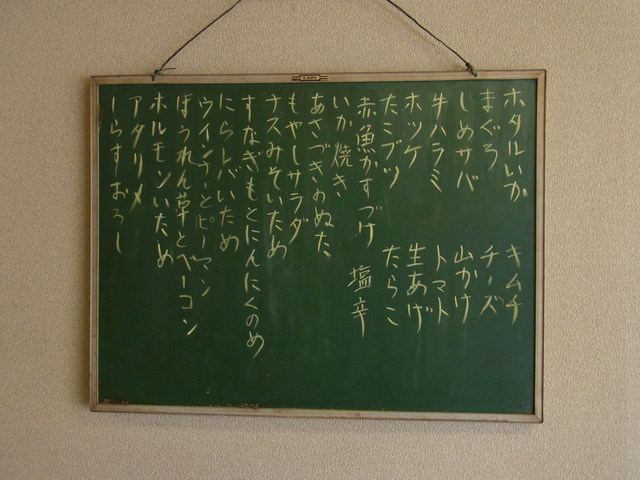 ホタルいか　キムチ
まぐろ　チーズ
しめサバ　山かけ
牛ハラミ　トマト
ホッケ　生あげ
たこブツ　たらこ
赤魚かすづけ　塩辛
いか焼き
あさづきのぬた
もやしサラダ
ナスみそいため
すなぎもとにんにくのめ
にらレバいため
ウインナーとピーマン
ほうれん草とベーコン
ホルモンいため
アタリメ
しらすおろし